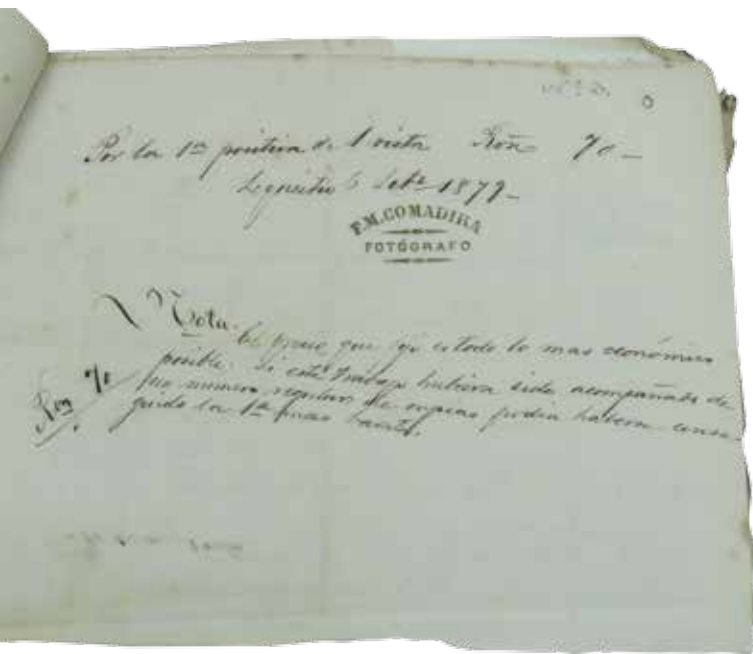 Por la 1ª positiva de 1 vista Rvñ 70 -
6 Setbe 1879 -
F.M. COMADIRA
FOTÓGRAFO
Nota. El precio que fijo es todo lo mas económico
posible. Si este trabajo hubiera sido acompañado de
un numero regular de copias podia haberse conse-
guido la 1ª mas barata.
Rvn 70